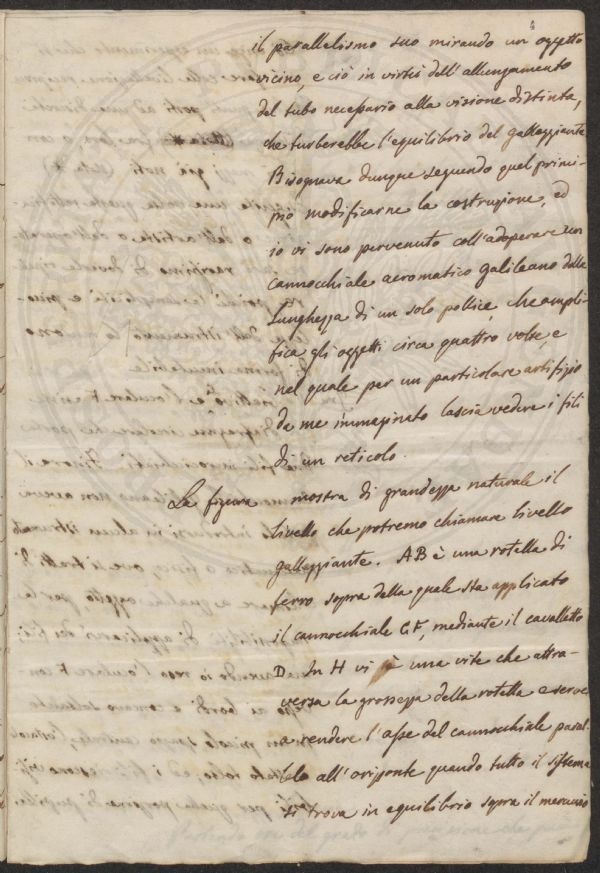 4
il parallelismo suo mirando un oggetto
vicino, e ciò in virtù dell'allungamento
del tubo necessario alla visione distinta,
che turberebbe l'equilibrio del galleggiante
Bisognava dunque seguendo quel princi-
pio modificarne la costruzione, ed
io vi sono pervenuto coll'adoperare un
cannocchiale acromatico Galileano della
lunghezza di un solo pollice, che ampli-
fica gli oggetti circa quattro volte, e
nel quale per un particolare artifizio
da me immaginato lascia vedere i fili
di un reticolo.
La figura mostra di grandezza naturale il
livello che potremo chiamare livello
galleggiante. AB è una rotella di
ferro sopra della quale sta applicato
il cannocchiale CF, mediante il cavalletto
D. In H vi è una vite che attra-
versa la grossezza della rotella e serve
a rendere l'asse del cannocchiale paral-
lelo all'orizonte quando tutto il sistema
si trova in equilibrio sopra il mercurio
Parlando ora del grado di precisione che può